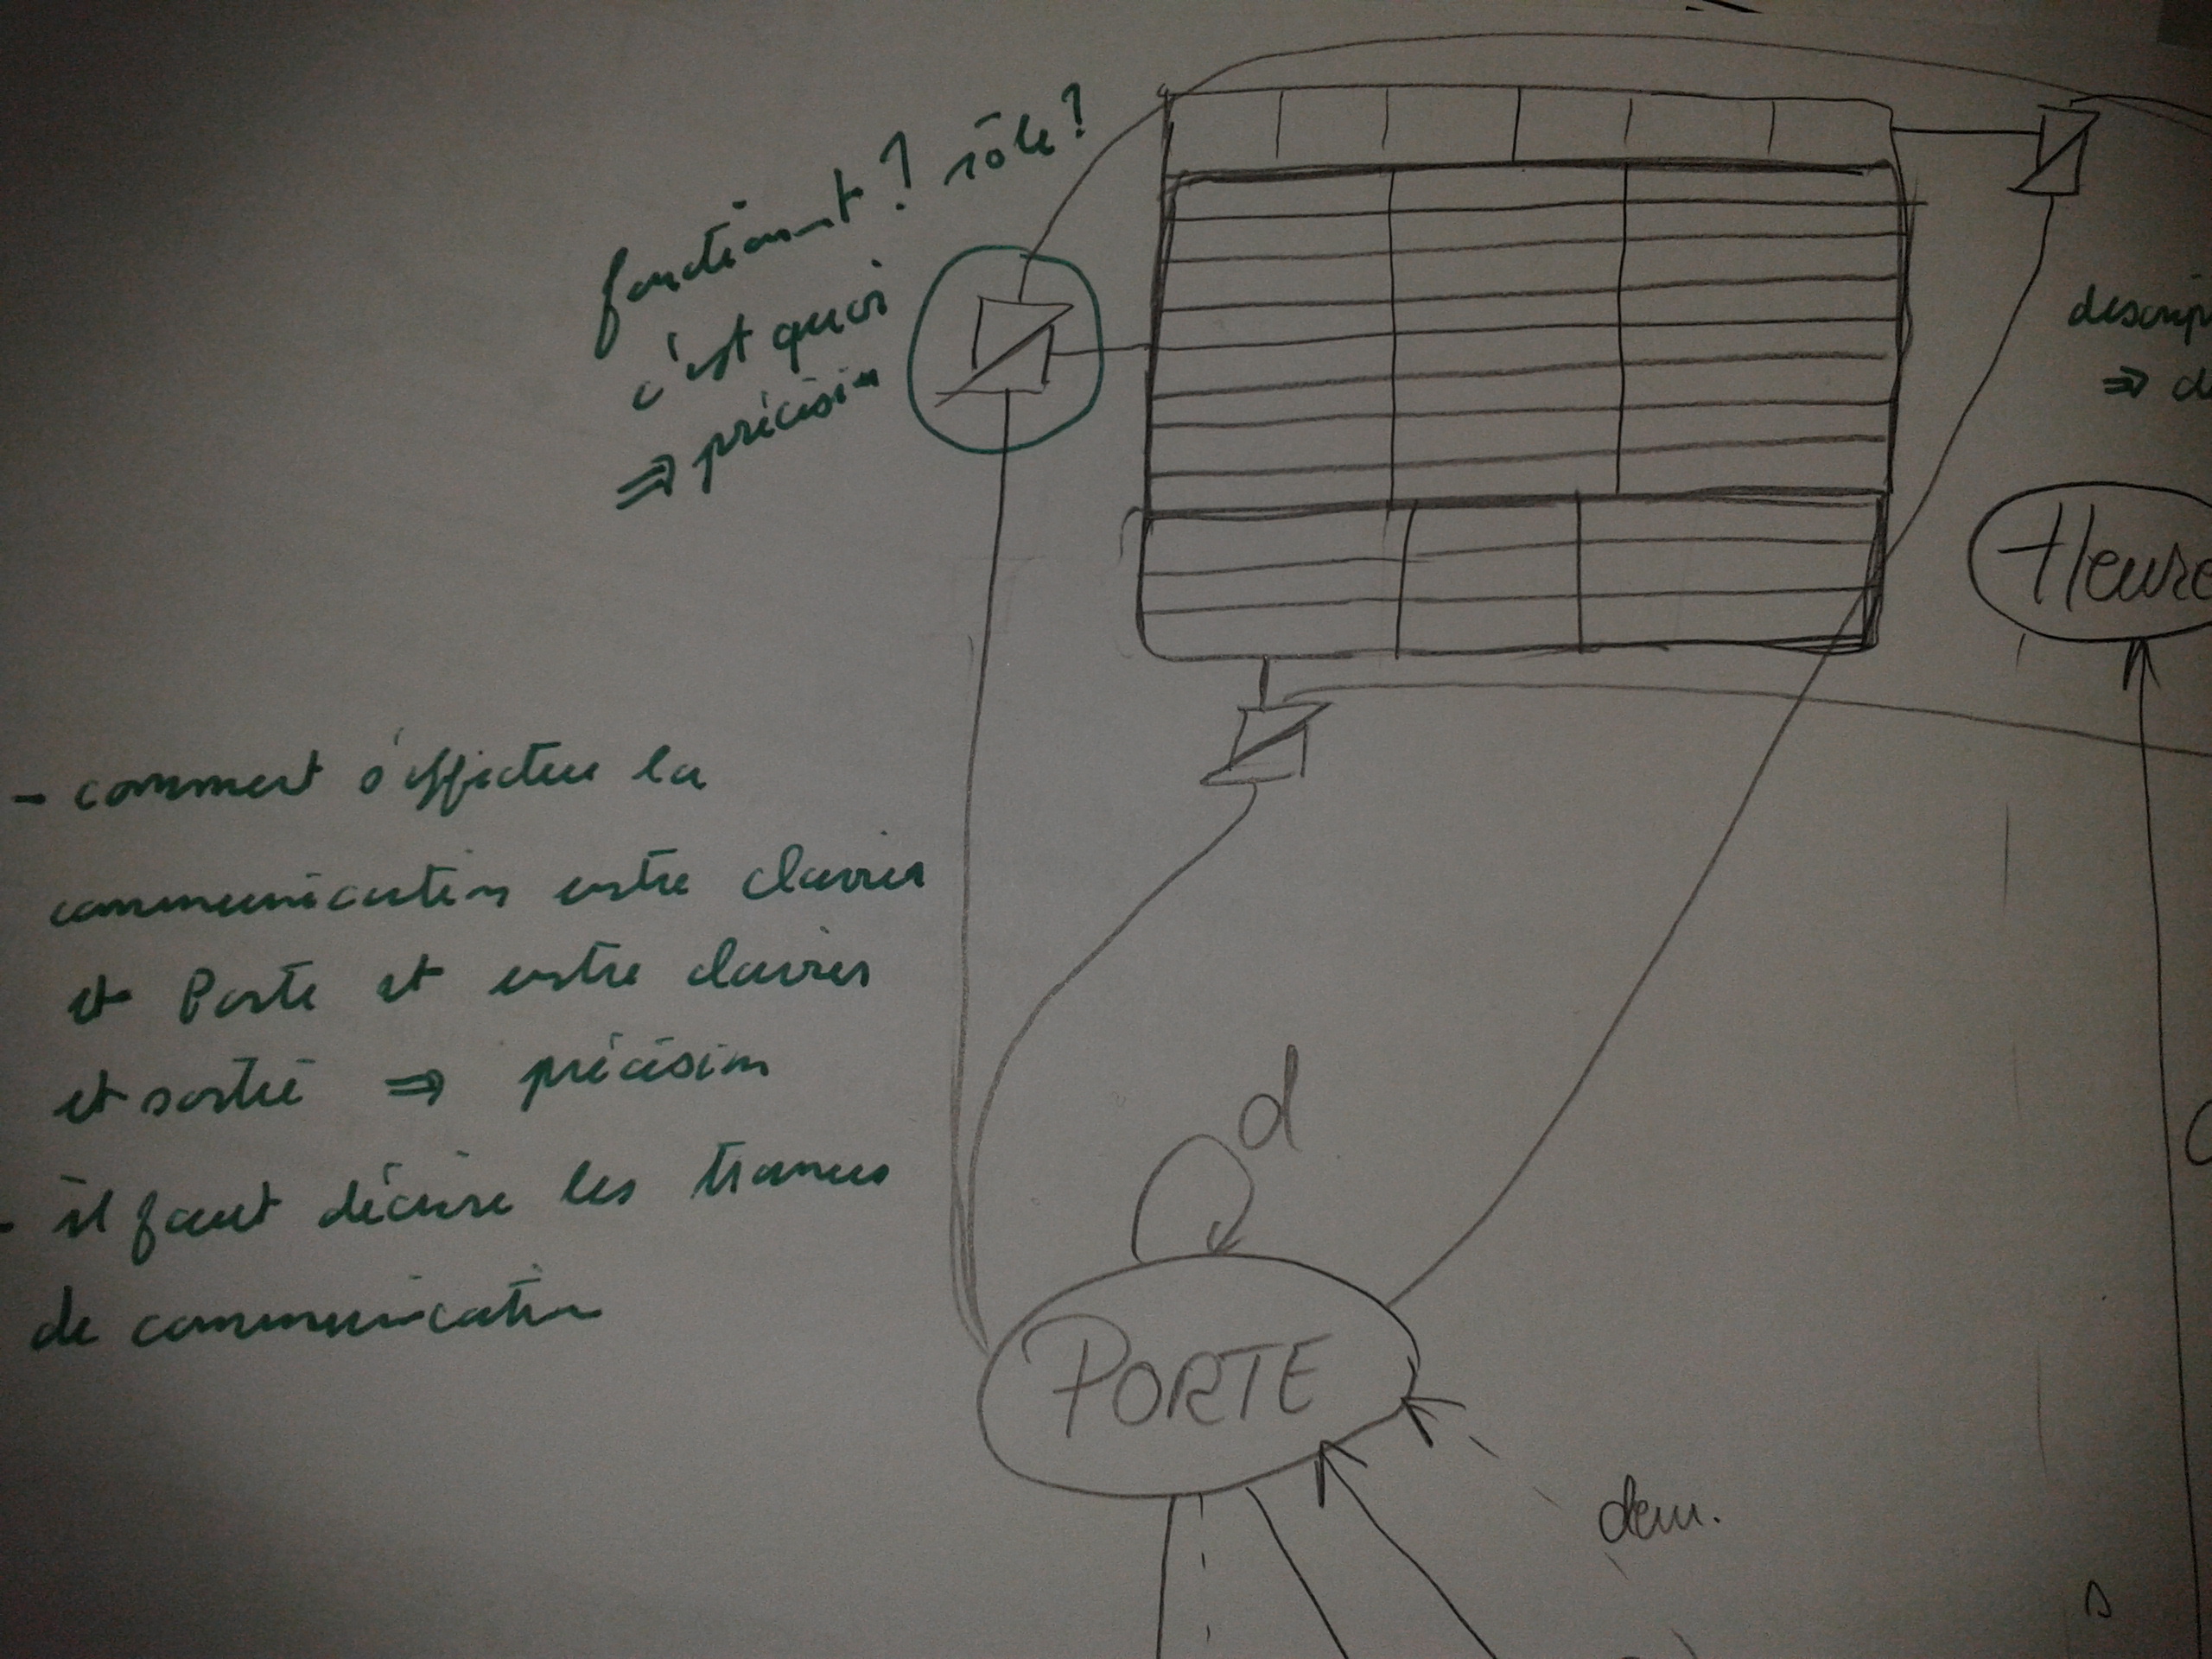 fonctionnt ? rôle ?
c'est quoi
⇒ précision
descrip
⇒ d
Heure
- comment s'effectue la
communication entre clavier
et Porte et entre clavier
et sortie ⇒ précision
- il faut décrire les trames
de communication
d
PORTE
dem.